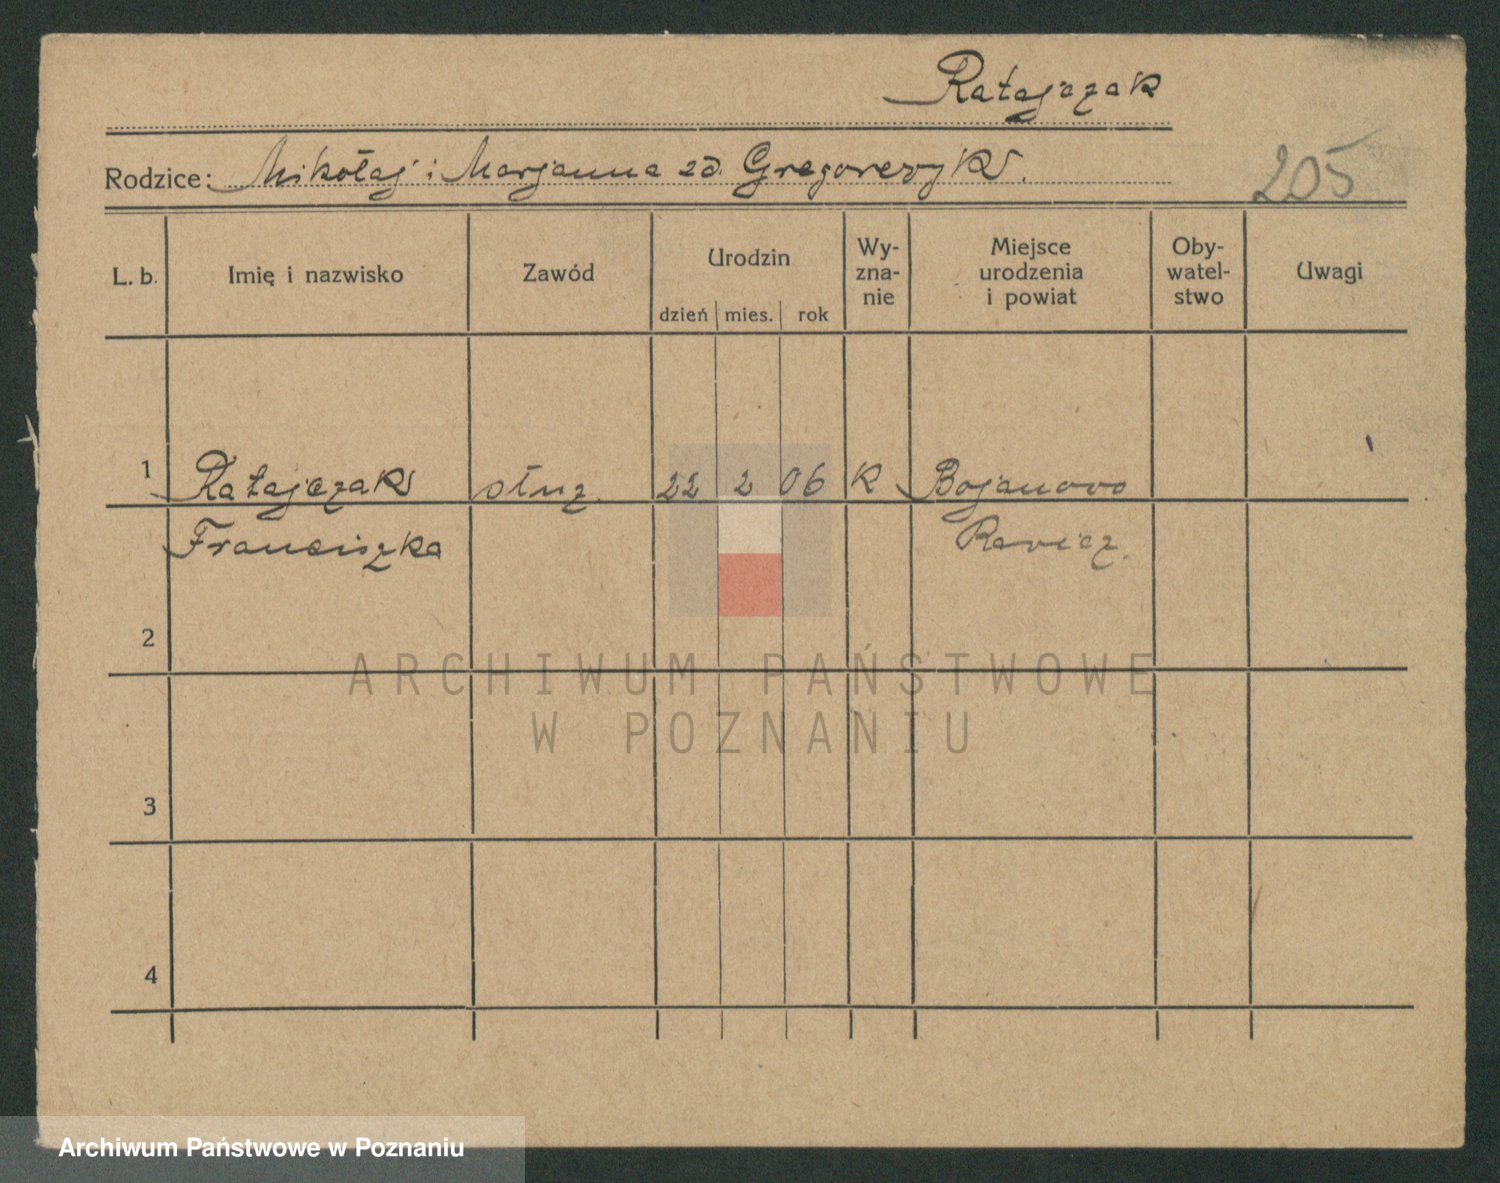 Ratajczak
Rodzice: Mikołaj i Marjanna zd. Gregorczyk
205
L. b. Imię i nazwisko Zawód Urodzin dzień mies. rok Wy-zna-nie Miejsce urodzenia i powiat Oby-watel-stwo Uwagi
1 Ratajczak służ. 22 2 06 K Bojanowo
Franciszka Rawicz.
2
3
4
ARCHIWUM PAŃSTWOWE
W POZNANIU
Archiwum Państwowe w Poznaniu